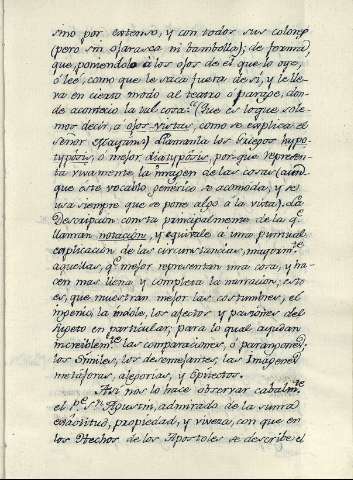 sino por extenso, y con todos sus colores
(pero sin ojarasca ni bambolla); de forma,
que poniendolo à los ojos de el que lo oye,
ó lee, como que le saca fuera de sí, y le lle-
va en cierto modo al teatro ó parage, don-
de acontecio la tal cosa. (Que es lo que sole-
mos decir, a ojos vistas, como se explica el
señor Mayans) llamanla los Griegos hypo-
typósis, ó mejor diatypósis, por que represen-
ta vivamente la imagen de las cosas (aun-
que este vocablo generico se acomoda, y se
usa siempre que se pone algo á la vista). La
Descripcion consta principalmente de la q.e
llaman notacion, y equivale a una puntual
explicacion de las circunstancias, mayorm.te
aquellas, q.e mejor representan una cosa, y ha-
cen mas llena, y completa la narracion; esto
es, que muestran mejor las costumbres, el
ingenio, la indole, los afectos y pasiones del
sugeto en particular; para lo qual ayudan
increiblem.te las comparaciones, ó parangones,
los Similes, los desemejantes, las Imagenes
metáforas, alegorias, y Epitectos.
Asi nos lo hace observar cabalm.te
el P.e S.n Agustin, admirado de la suma
exactitud, propiedad, y viveza, con que en
los Hechos de los Apostoles se describe el